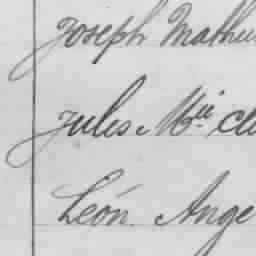 Joseph Mathu
Jules Mii Cl
Léon Ange